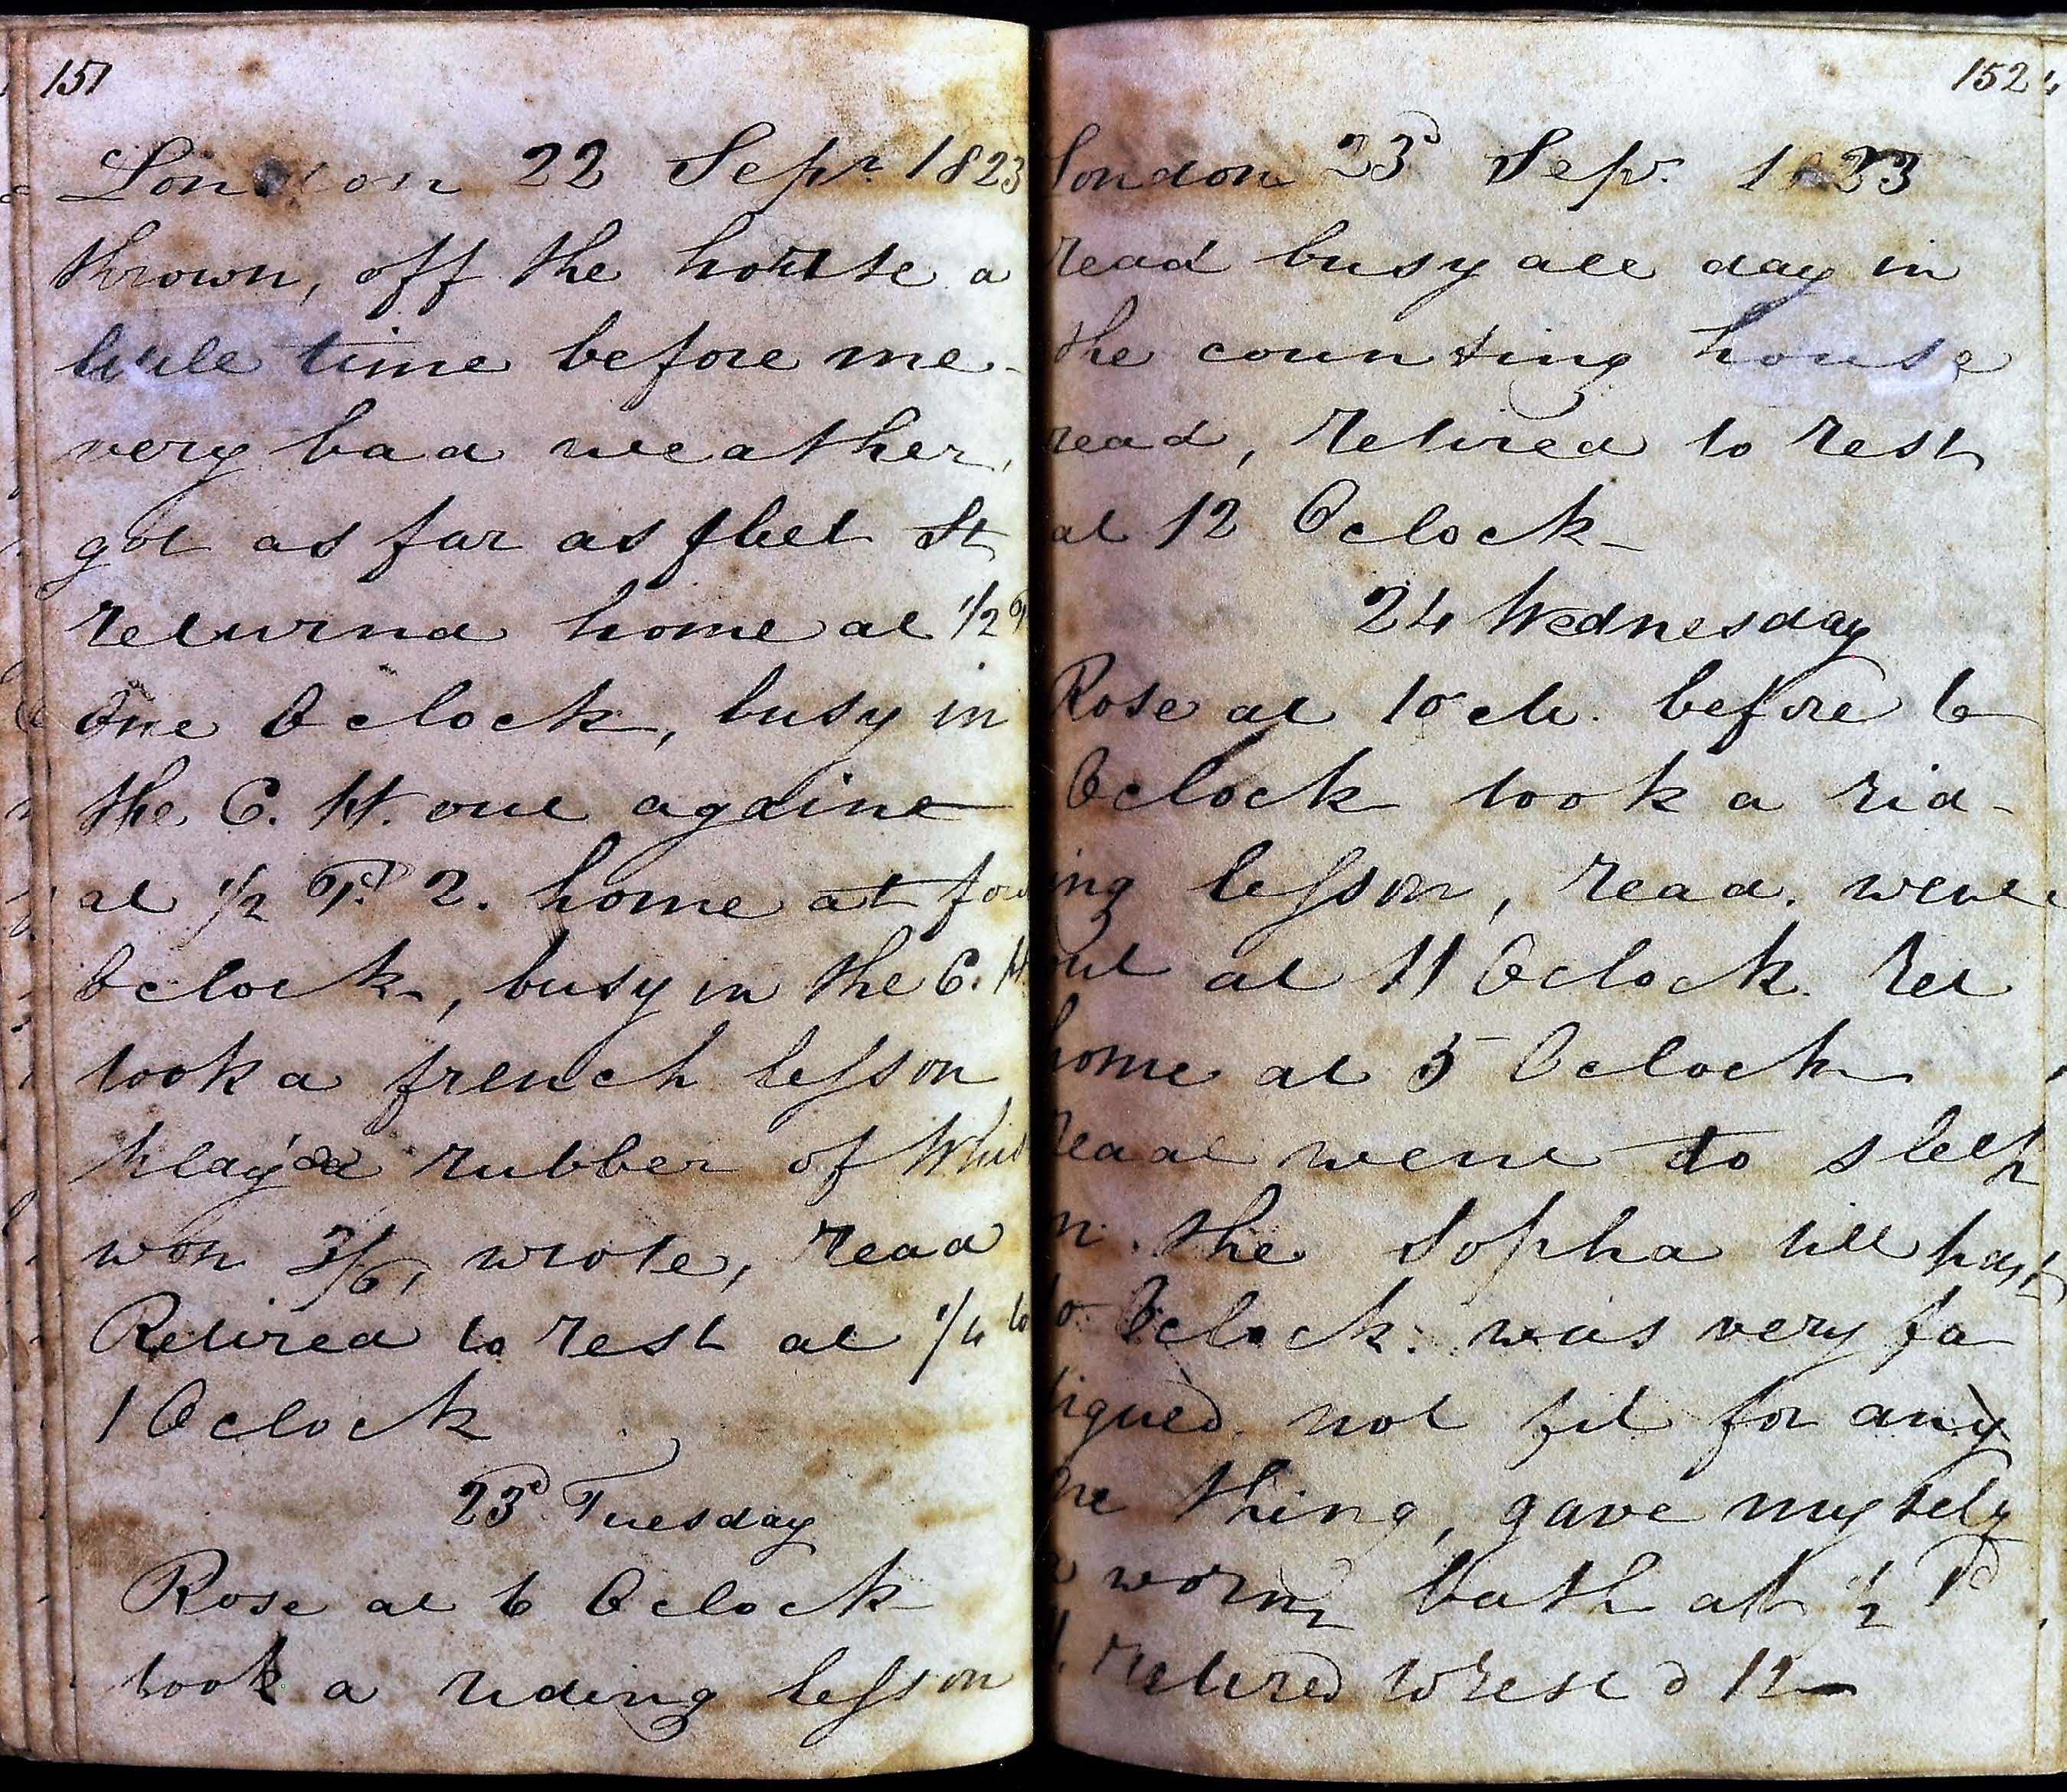 151
London 22 Sepr. 1823
thrown, off the horse a
little time before me -
very bad weather,
got as far as fleet St
returnd home at 1/2 P
One Oclock, busy in
the C. H. out againe
at 1/2 Pt. 2. home at four
Oclock, busy in the C. H.
took a french lesson
play'd a rubber of Whist
won 2/6, wrote, read
Retired to rest at 1/4 to
1 Oclock
23d Tuesday
Rose at 6 Oclock
took a riding lesson
152
London 23d Sepr. 1823
read busy all day in
the counting house
read, retired to rest
at 12 Oclock -
24 Wednesday
Rose at 10 m. before 6
Oclock took a rid-
ing lesson, read. went
out at 11 Oclock. ret
home at 5 Oclock
read went to sleep
on the Sopha till past
10 Oclock. was very fa
tigued not fit for any
one thing, gave myself
a worm bath at 1/2 Pd
11. retired to rest @ 12 -